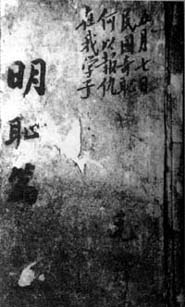 五月七日
民国奇耻
何以报仇
在我学子
明恥篇